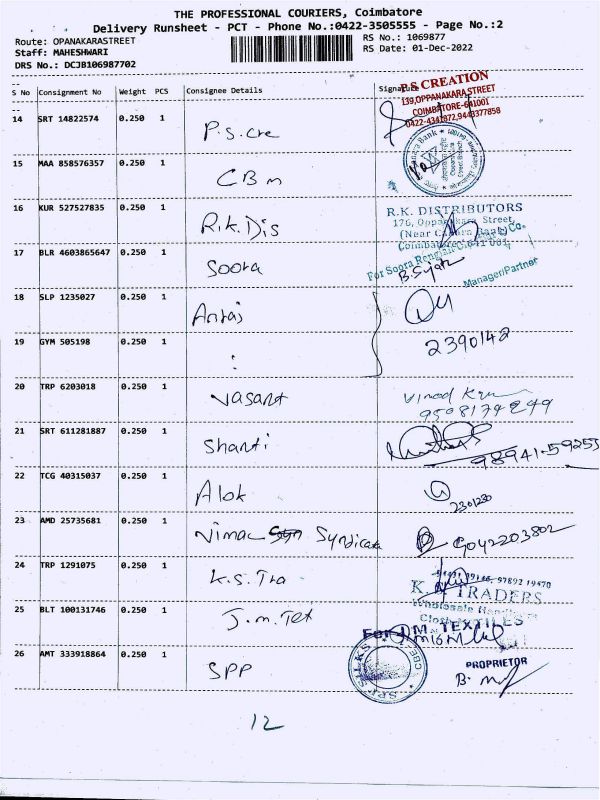 THE PROFESSIONAL COURIERS, Coimbatore
Delivery Runsheet - PCT - Phone No.:0422-3505555 - Page No.:2
Route: OPANAKARASTREET
RS No.: 1069877
Staff: MAHESHWARI
RS Date: 01-Dec-2022
DRS No.: DCJB106987702
S No Consignment No Weight PCS Consignee Details Signature
P.S CREATION
139,OPPANAKARA STREET
COIMBATORE-641001
14 SRT 14822574 0.250 1 P.S.Cre
15 MAA 858576357 0.250 1 CBm
16 KUR 527527835 0.250 1 R.K.Dis
R.K. DISTRIBUTORS
176, Oppanakara Street,
(Near Canara Bank)
Coimbatore-641 001
17 BLR 4603865647 0.250 1 Soora
For Soora
Manager/Partner
18 SLP 1235027 0.250 1
19 GYM 505198 0.250 1 :
2390142
20 TRP 6203018 0.250 1 Vasant
Vinod
21 SRT 611281887 0.250 1 Shanti
98941-59255
22 TCG 40315037 0.250 1 Alok
23 AMD 25735681 0.250 1 Nimac Syndicate
9042203802
24 TRP 1291075 0.250 1 K.S.Tra
97892 19470
TRADERS
Wholesale
25 BLT 100131746 0.250 1 J.m.Tex
For J.M. TEXTILES
26 AMT 333918864 0.250 1 SPP
PROPRIETOR
12